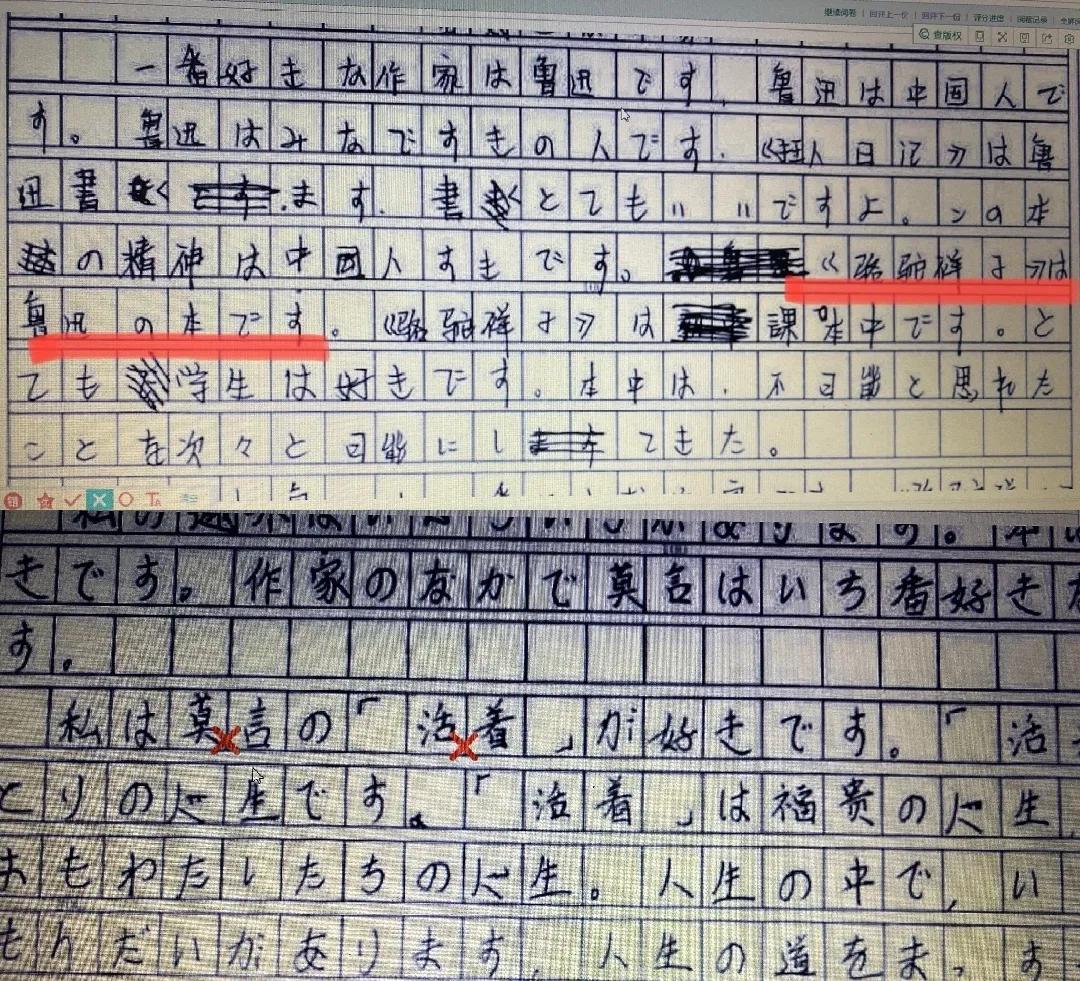 继续阅卷 | 回评上一份 | 回评下一份 | 评分进度 | 阅卷记录 |
查版权
一番好きな作家は魯迅です.魯迅は中国人で
す。魯迅はみなですきの人です.《狂人日记》は魯
迅書く.ます.書くとてもいいですよ。この本
の精神は中国人すもです。《骆驼祥子》は
魯迅の本です。《骆驼祥子》は課本中です。と
ても学生は好きです。本中は.不可能と思れた
ことを次々と可能にしてきた。
きです。作家のなかで莫言はいち番好きな
す。
私は莫言の「活着」が好きです。「活着
とりの人生です。「活着」は福贵の人生
おもわたしたちの人生。人生の中で,い
もんだいがあります.人生の道をまっす